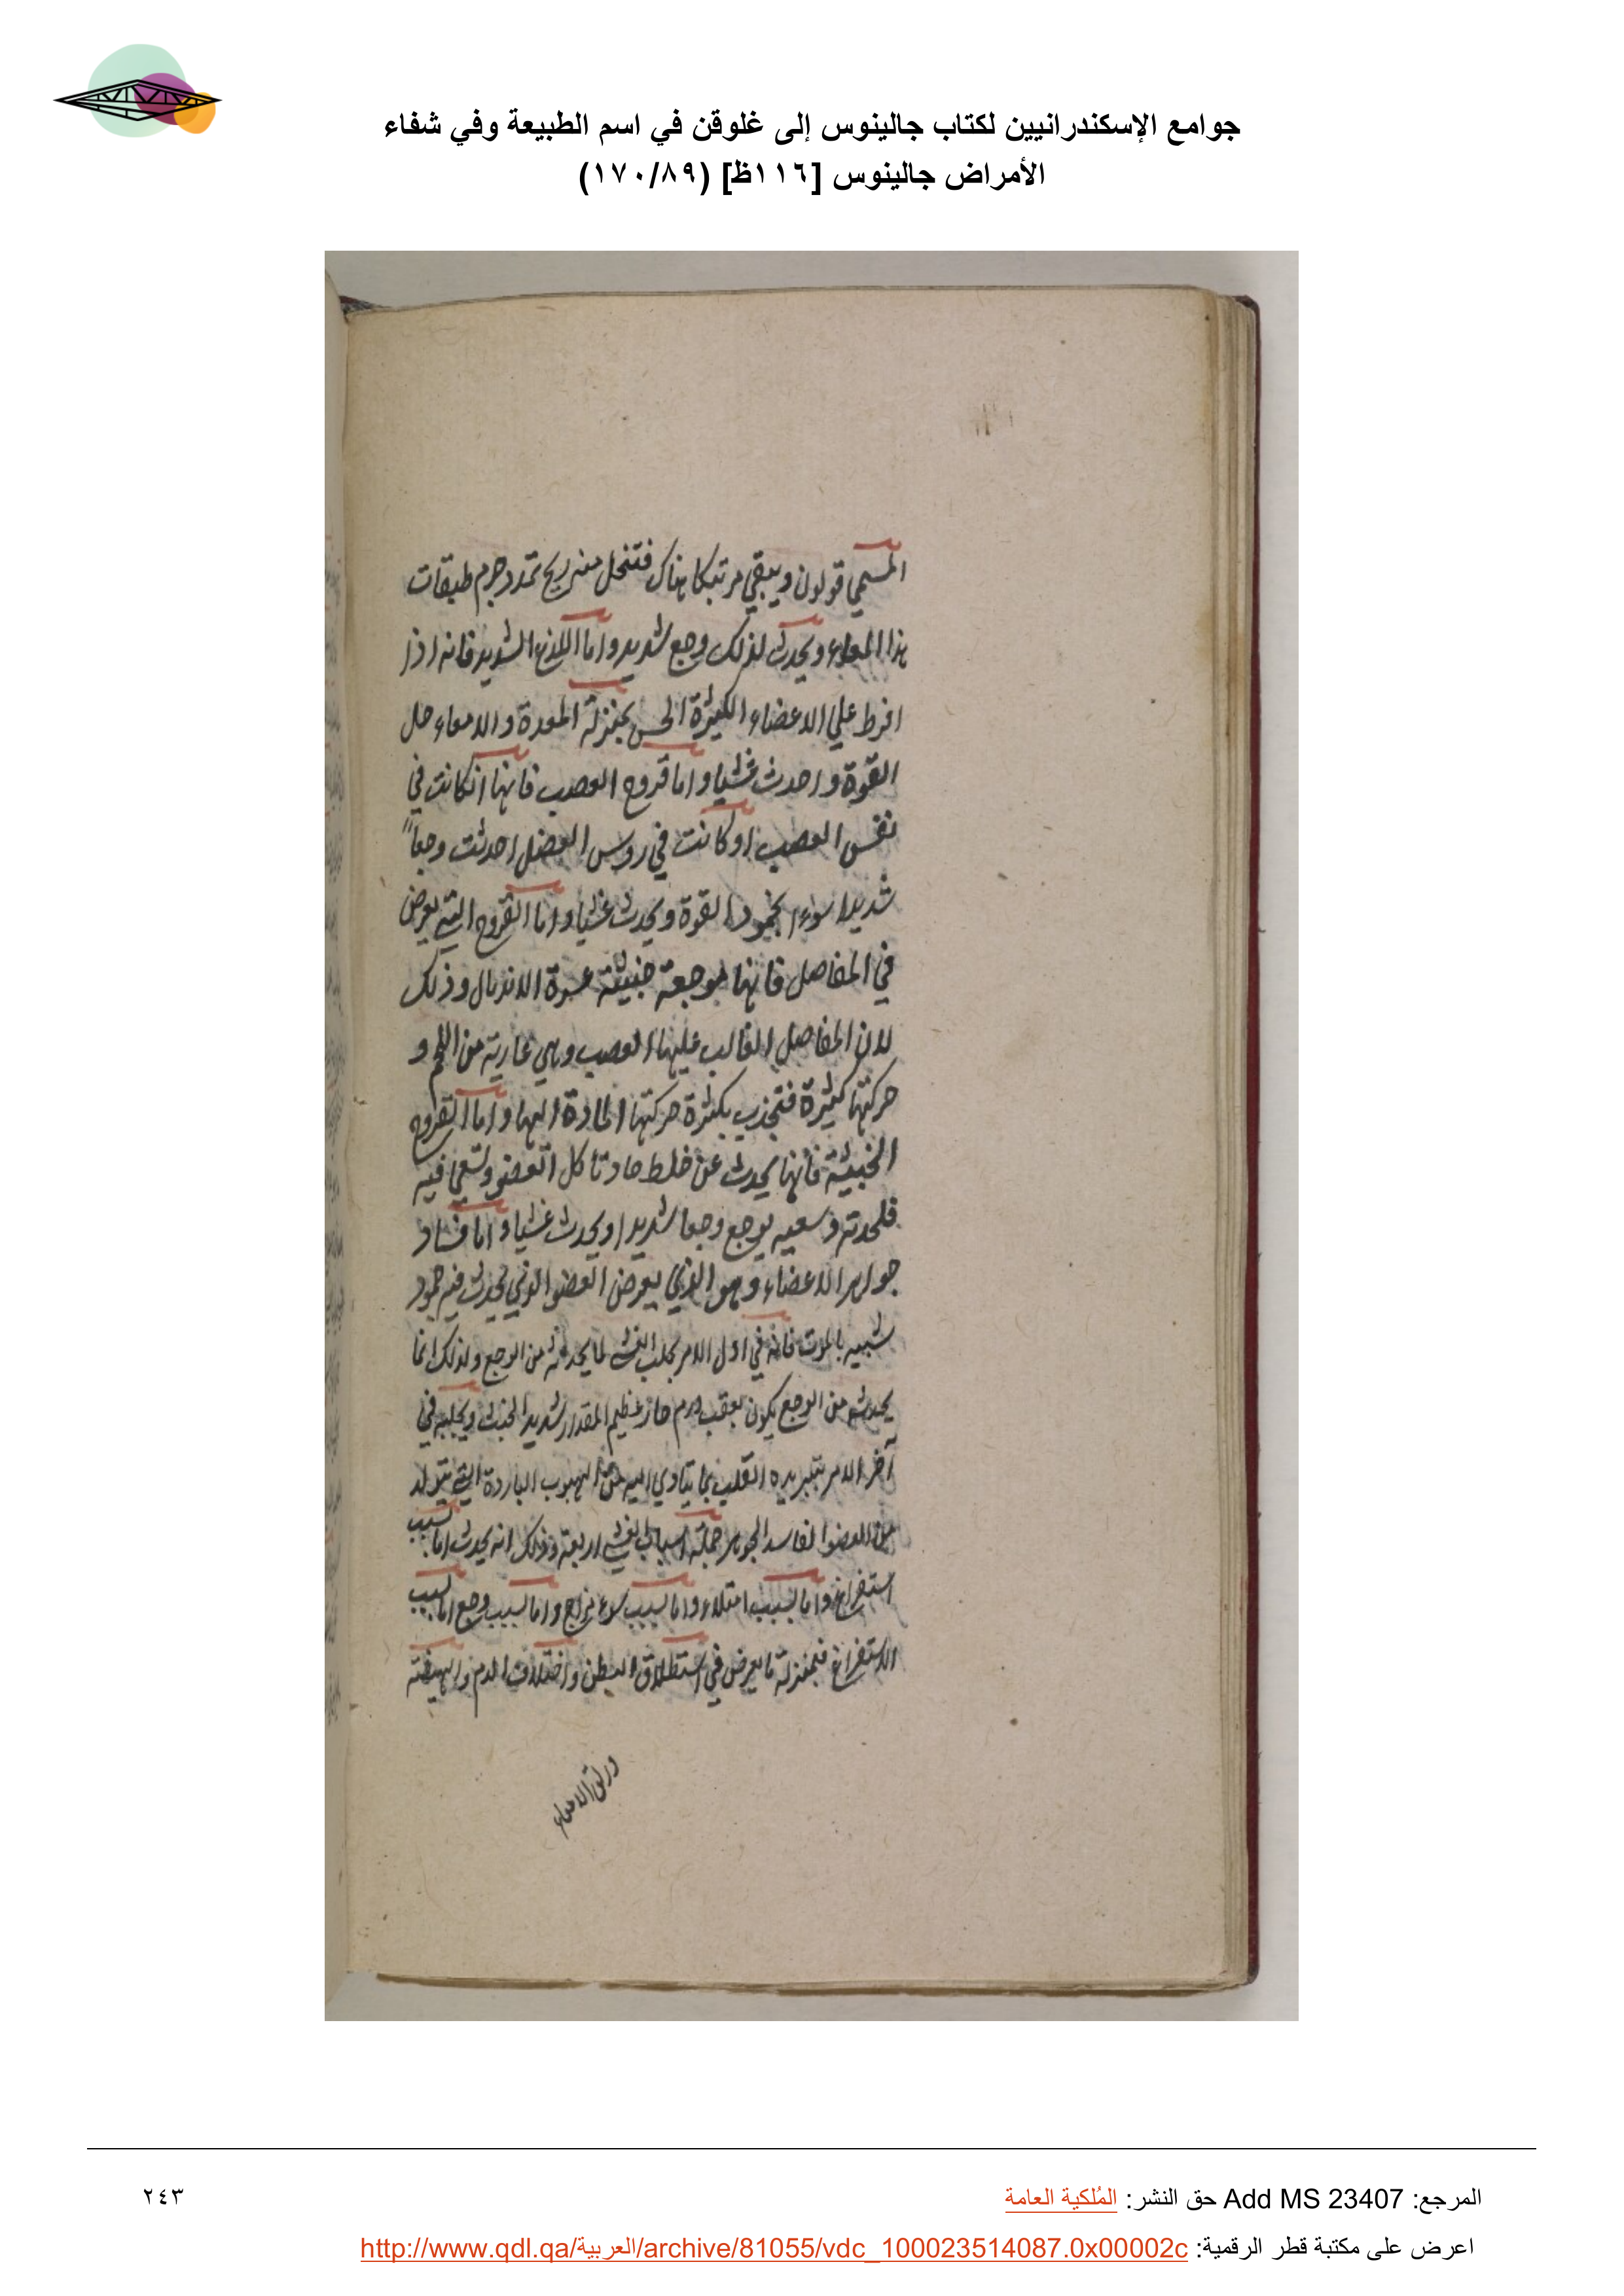 جوامع الإسكندرانيين لكتاب جالينوس إلى غلوقن في اسم الطبيعة وفي شفاء
الأمراض جالينوس [١١٦ظ] (١٧٠/٨٩)
المسمي قولون ويبقي مرتبكا هناك فتنحل منه ريح تمدد جرم طبقات
هذا المعاء ويحدث لذلك وجع شديد واما اللذع الشديد فانه اذا
افرط علي الاعضاء الكثيرة الحس بمنزلة المعدة والامعاء حل
القوة واحدث غشيا واما قروح العصب فانها انكانت في
نفس العصب اوكانت في روس العضل احدثت وجعاً
شديدا القوة ويحدث غشيا واما القروح التي يعرض
في المفاصل فانها موجعة خبيثة عسرة الاندمال وذلك
لان المفاصل الغالب عليها العصب وهي عارية من اللحم و
حركتها كثيرة فتجذب بكثرة حركتها المادة اليها واما القروح
الخبيثة فانها يحدث عن خلط حاد تاكل العضو وتسعي فيه
فلحدته وسعيه يوجع وجعا شديدا ويحدث غشيا واما فساد
جواهر الاعضاء وهو الذي يعرض العضو الذي يحدث فيه خمود
شبيه بالموت فانه في اول الامر يجلب الغشي لما يحدثه من الوجع ولذلك انما
يحدثه من الوجع يكون بعقب ورم حار عظيم المقدار شديد الخبث ويجلبه في
آخر الامر بتبريده القلب بما يتادي اليه من الباردة التي يتولد
من العضو الفاسد الجوهر جملة اسباب الغشي اربعة وذلك انه يحدث اما بسبب
استفراغ واما بسبب امتلاء واما بسبب سوء مزاج واما بسبب وجع اما بسبب
الاستفراغ فبمنزلة ما يعرض في استطلاق البطن واختلاف الدم والهيضة
وزلق الامعاء
المرجع: Add MS 23407 حق النشر: المُلكية العامة
٢٤٣
اعرض على مكتبة قطر الرقمية: http://www.qdl.qa/العربية/archive/81055/vdc_100023514087.0x00002c